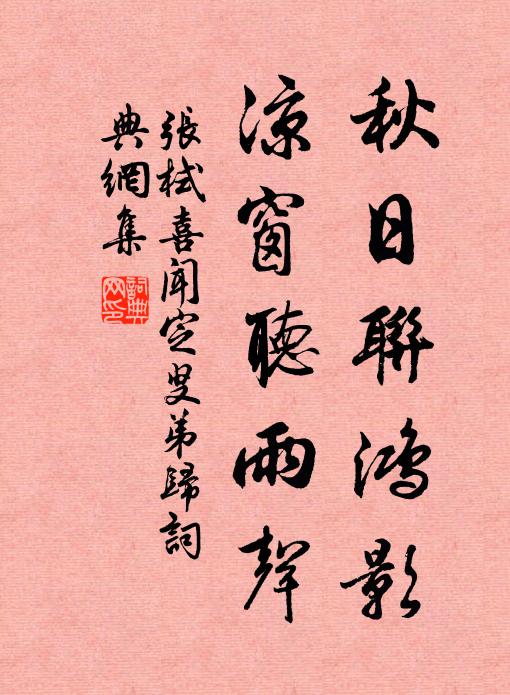 秋日聯鴻影
涼窗聽雨聲
張栻喜聞定叟弟歸詞
典網集
詞典網印